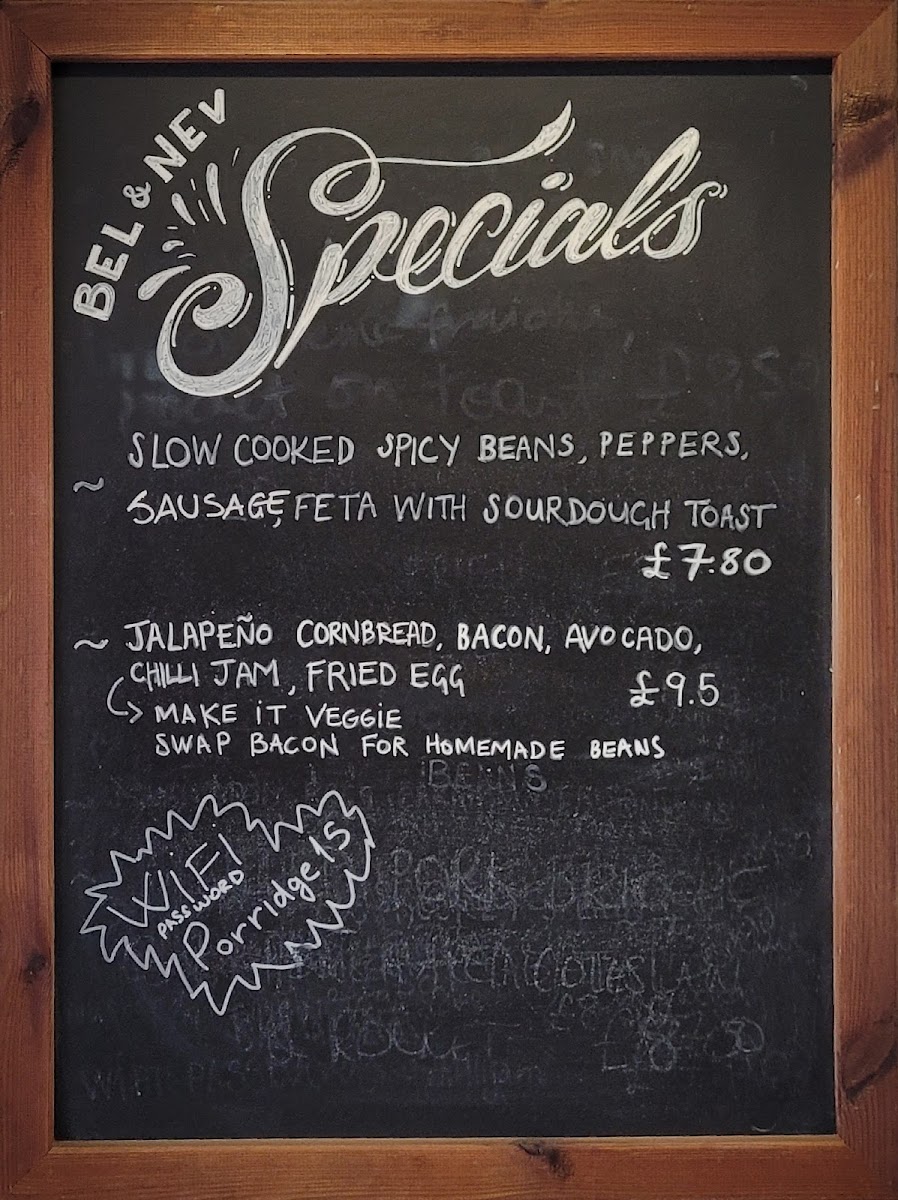 BEL & NEV
Specials
~ SLOW COOKED SPICY BEANS, PEPPERS,
SAUSAGE, FETA WITH SOURDOUGH TOAST
£7.80
~ JALAPEÑO CORNBREAD, BACON, AVOCADO,
CHILLI JAM, FRIED EGG £9.5
MAKE IT VEGGIE
SWAP BACON FOR HOMEMADE BEANS
BEANS
WiFi
PASSWORD
Porridge15